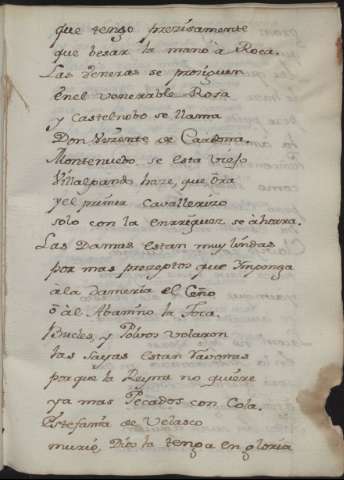 que tengo precisamente
que besar la mano à Roca.
Las Veneras se prosiguen
en el Venerable Rosa
y Castelnobo se llama
Don Vizente de Cardona.
Montenuebo se esta viejo
Villalpando haze, que Ora
y el primer Cavallerizo
solo con la enrriquez se ahorra.
Las Damas estan muy lindas
por mas prezeptos que Ymponga
a la dameria el Ceño
ò al Abanino la Toca.
Bucles, y Polvos volaron
las sayas estan
pa que la Reyna no quiere
ya mas Pecados con Cola.
Estefania de Velasco
murio, Dios la tenga en gloria